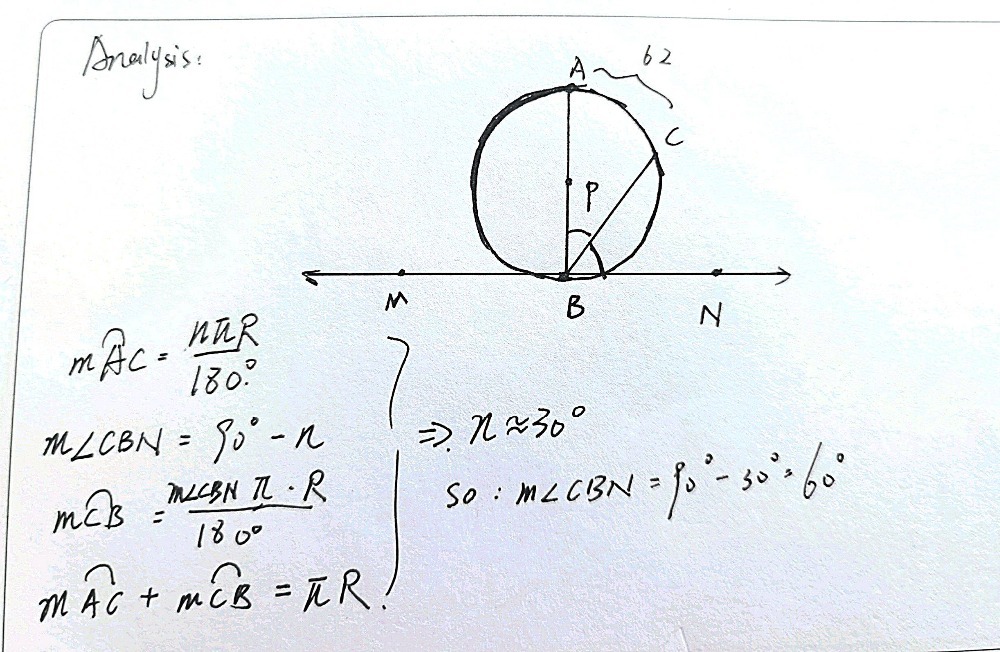 Analysis:
62
A
C
P
M
B
N
m⌒AC = nπR/180°
m∠CBN = 90° - n
m⌒CB = m∠CBN π · R/180°
m⌒AC + m⌒CB = πR.
⇒ n ≈ 30°
so : m∠CBN = 90° - 30° = 60°